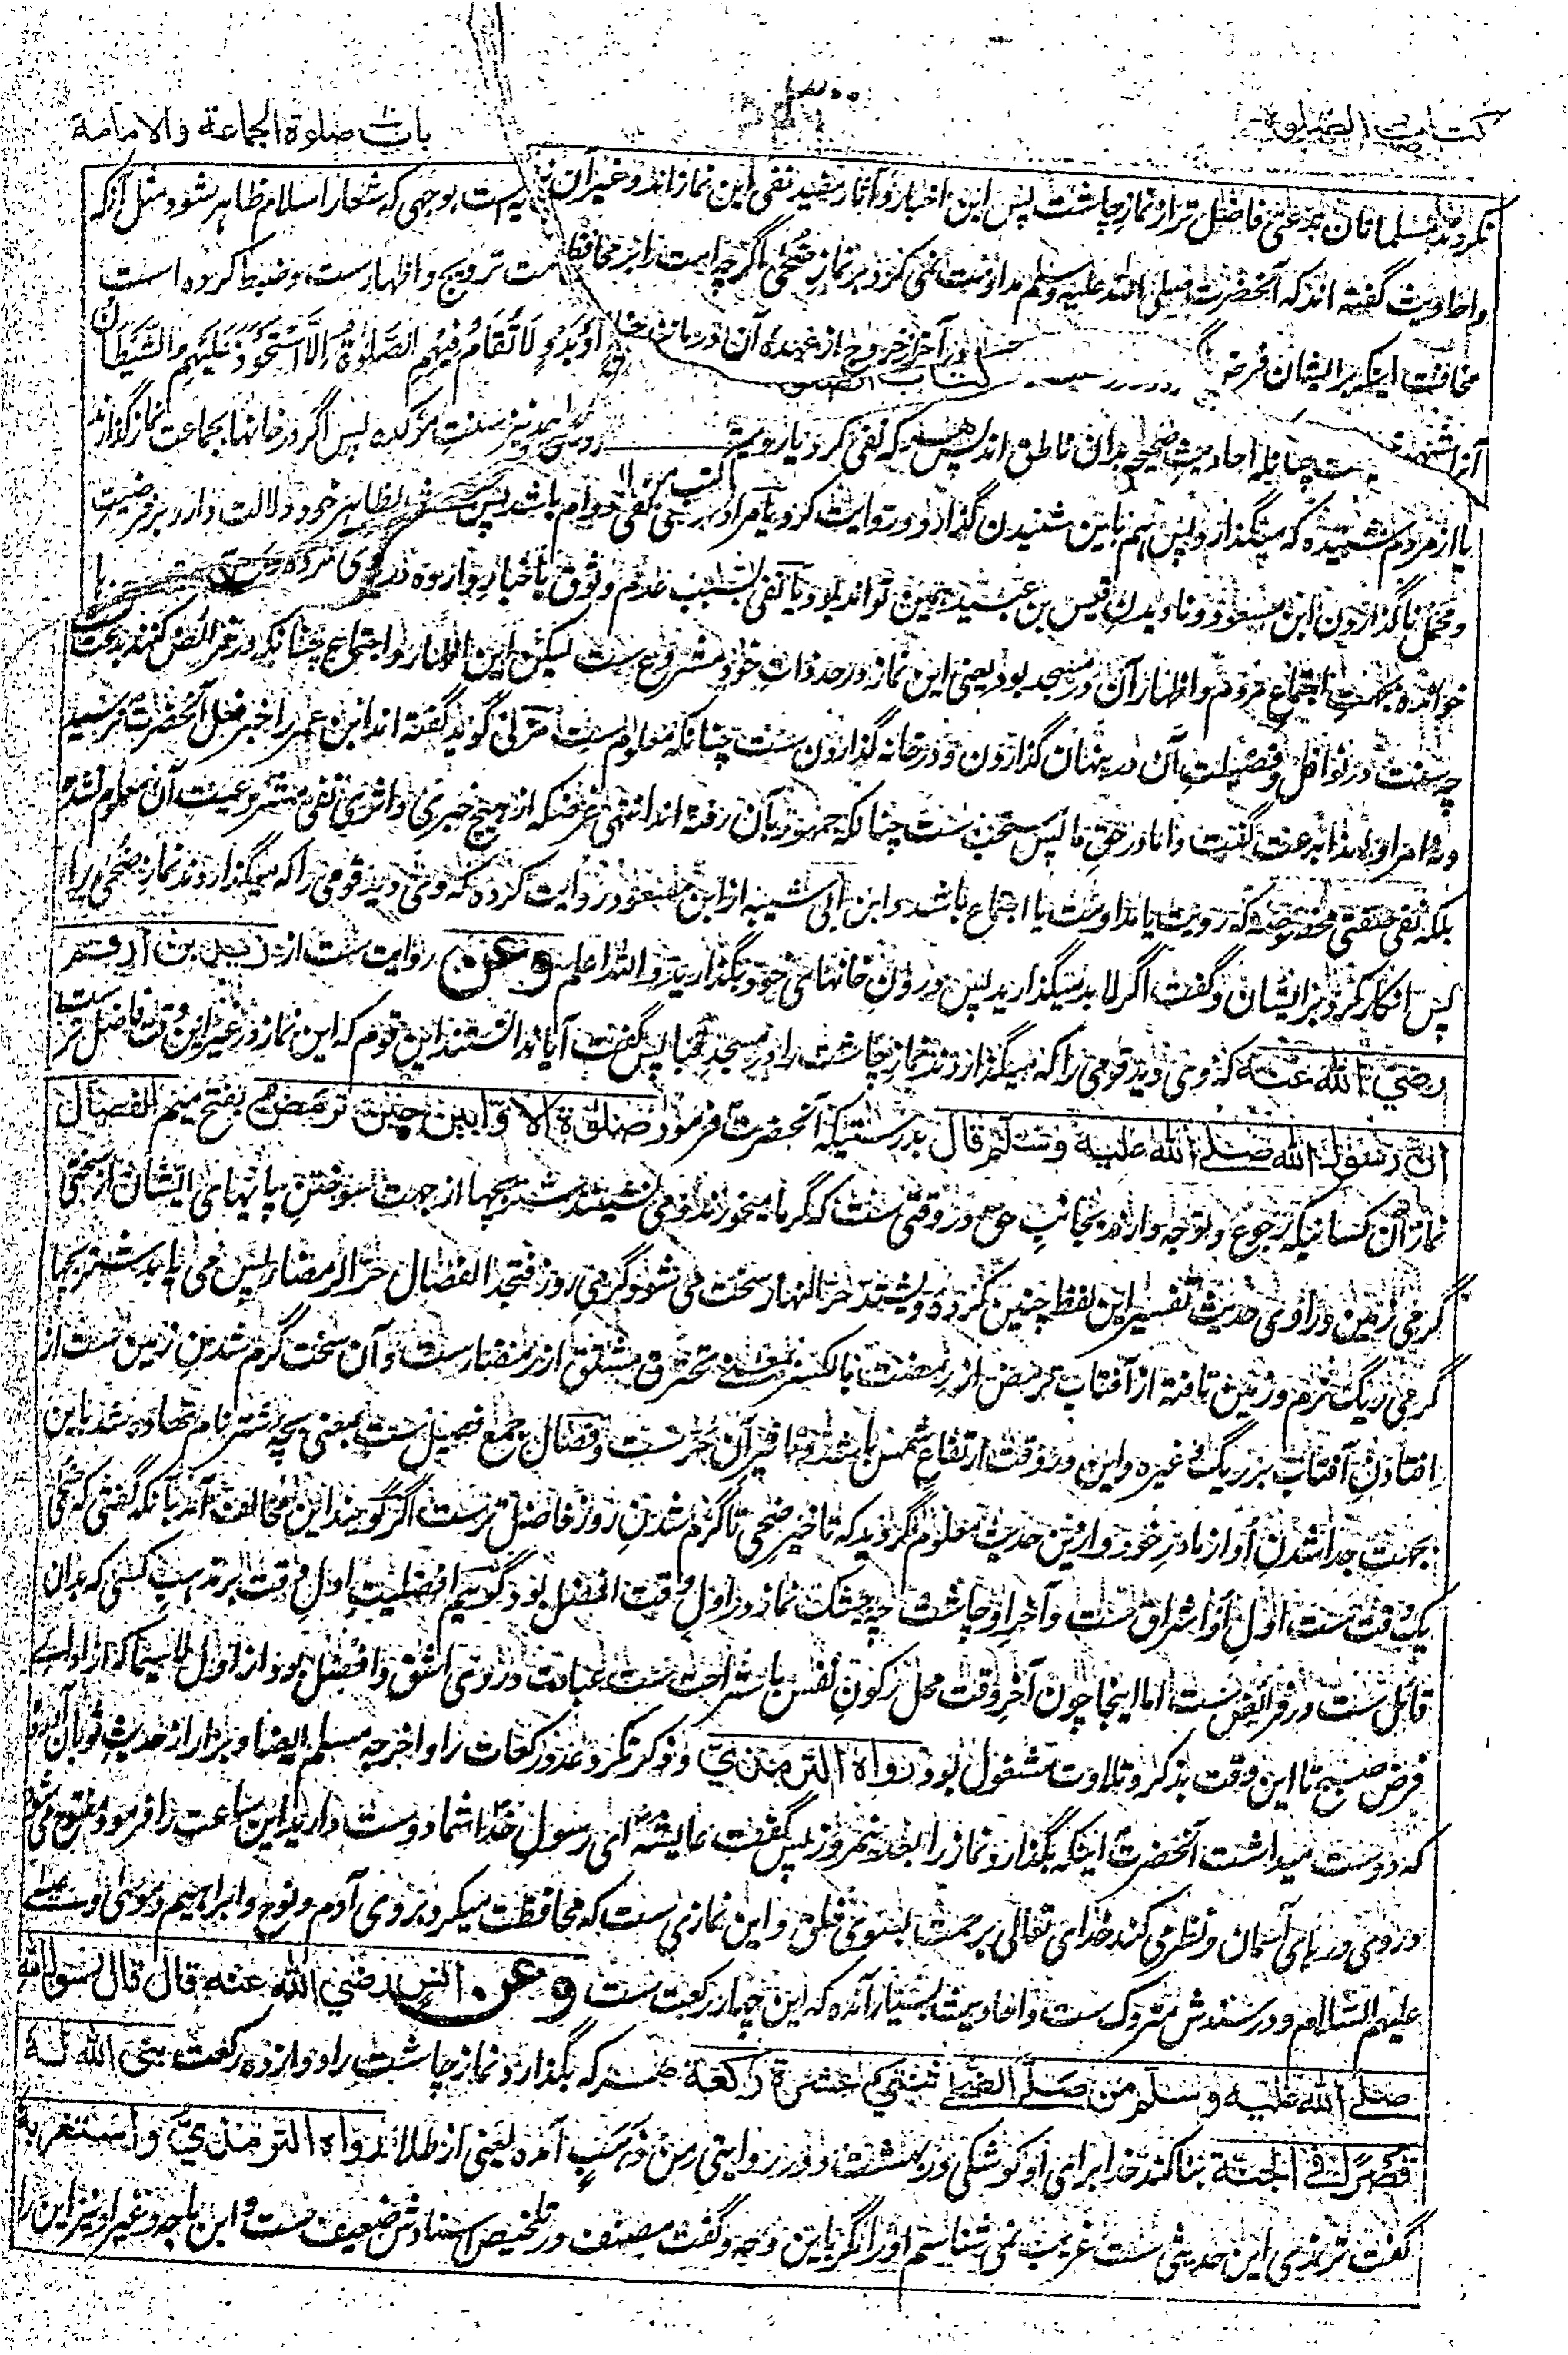 کتاب الصلوة
باب صلوة الجماعة والامامة
نکردند مسلمانان بدعتی فاضل تر از نماز چاشت پس این اخبار و آثار مفید نفی این نماز اند و غیر آن یست بوجهی که شعار اسلام ظاهر شود مثل آنکه
و احادیث گفته اند که آنحضرت صلی الله علیه وسلم مداومت نمی کرد بر نماز ضحی اگرچه امت را بر محافظت ترویج و اظهار ست و ضبط کرده است
مخافت اینکه بر ایشان فرض او بدو لا تقام فیهم الصلوة الا استحوذ علیهم الشیطان
کتاب الصلوة
ست چنانکه احادیث صحیحه بدان ناطق اند پس هر که نفی کرد یا رویت سنت مؤکده پس اگر در خانها بجماعت نماز گذارند
یا از مردم شنیده که میگذارد پس هم باین شنیدن گذارد و روایت کرد یا مراد نفی دوام باشد پس بظاهر خود دلالت دارد بر فرضیت
و محمل ناگذاردن ابن مسعود و نادیدن قیس بن عبید همین تواند بود یا نفی بسبب عدم وثوق باخبار وارده در وی
خوانده بجهت اجتماع مردم و اظهار آن در مسجد بود یعنی این نماز در حد ذات خود مشروع ست لیکن این اظهار و اجتماع چنانکه در فرائض کنند بدعت
چه سنت در نوافل و فضیلت آن در پنهان گذاردن و در خانه گذاردن ست چنانکه معلوم ست گوید گفته اند ابن عمر را خبر فعل آنحضرت نرسید
و نه امر او بدان بدعت گفت و اما در حق ما پس مستحب ست چنانکه جمهور بآن رفته اند انتهی غرضکه از هیچ خبری و اثری نفی مشروعیت آن معلوم نشد
بلکه نفی صفتی مخصوصه که رویت یا مداومت یا اجتماع باشد و ابن ابی شیبه از ابن مسعود روایت کرده که وی دید قومی را که میگذاردند نماز ضحی را
پس انکار کرد بر ایشان و گفت اگر لا بد میگذارید پس درون خانهای خود بگذارید والله اعلم وعن روایت ست از زید بن ارقم
رضی الله عنه که وی دید قومی را که میگذاردند نماز چاشت را در مسجد قبا پس گفت آیا ندانستند این قوم که این نماز در غیر این وقت فاضل تر ست
ان رسول الله صلی الله علیه وسلم قال بدرستیکه آنحضرت فرمود صلوة الاوابین حین ترمض بفتح میم الفصال
نماز آن کسانیکه رجوع و توجه دارند بجانب حق در وقتی ست که گرما میخورند و می نشینند شتر بچها از جهت سوختن پایهای ایشان از سختی
گرمی زمین و راوی حدیث تفسیر این لفظ چنین کرده و یشتد حر النهار سخت می شود گرمی روز فتجد الفصال حر الرمضاء پس می یابد شتر بچها
گرمی ریگ نرم و زمین تافته از آفتاب ترمض از رمضت بالکسر بمعنی محترق مشتق از رمضاء ست و آن سخت گرم شدن زمین ست از
افتادن آفتاب بر ریگ و غیره و این در وقت ارتفاع شمس باشد و تاثیر آن حر ست و فصال جمع فصیل ست بمعنی بچه شتر نام نهاده شد باین
بجهت جدا شدن او از مادر خود و ازین حدیث معلوم گردید که تاخیر ضحی تا گرم شدن روز فاضل تر ست اگر گویند این مخالف آمد بآنکه گفتی که ضحی
یک وقت ست اول او اشراق ست و آخر او چاشت چه بیشک نماز در اول وقت افضل بود گوییم افضلیت اول وقت بر مذهب کسی که بدان
قائل ست در فرائض ست اما اینجا چون آخر وقت محل رکون نفس باستراحت ست عبادت در وی اشق و افضل بود از اول لا سیما که از ادای
فرض صبح تا این وقت بذکر و تلاوت مشغول بود رواه الترمذی و ذکر نکرد عدد رکعات را و اخرجه مسلم ایضا و بزار از حدیث ثوبان آورده
که دوست میداشت آنحضرت اینکه بگذارد نماز را بعد نیمروز پس گفت عایشه ای رسول خدا شما دوست دارید این ساعت را فرمود مفتوح می شود
در وی درهای آسمان و نظر می کند خدای تعالی برحمت بسوی خلق و این نمازی ست که محافظت میکرد بر وی آدم و نوح و ابراهیم و موسی و عیسی
علیهم السلام و در سندش متروک ست و احادیث بسیار آمده که این چهار رکعت ست وعن انس رضی الله عنه قال قال رسول الله
صلی الله علیه وسلم من صلی الضحی ثنتی عشرة رکعة هر که بگذارد نماز چاشت را دوازده رکعت بنی الله له
قصرا فی الجنة بنا کند خدا برای او کوشکی در بهشت و در روایتی من ذهب آمده یعنی از طلا رواه الترمذی و استغربه
گفت ترمذی این حدیثی ست غریب نمی شناسم او را مگر باین وجه و گفت مصنف در تلخیص اسنادش ضعیف ست و ابن ماجه و غیر او نیز این را